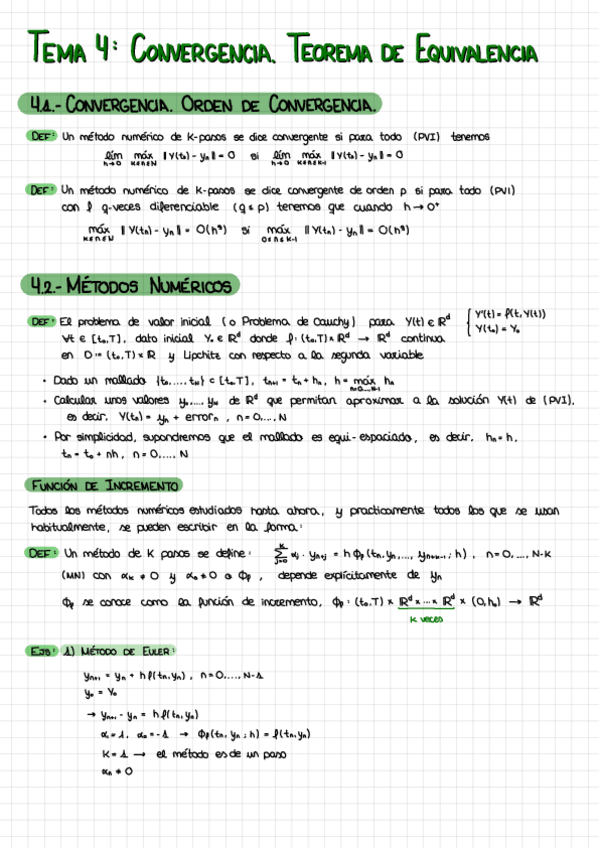 TEMA 4: CONVERGENCIA. TEOREMA DE EQUIVALENCIA
4.1.- CONVERGENCIA. ORDEN DE CONVERGENCIA.
DEF: Un método numérico de K-pasos se dice convergente si para todo (PVI) tenemos
lím máx ‖Y(tn) - yn‖ = 0 si lím máx ‖Y(tn) - yn‖ = 0
h→0 K≤n≤N h→0 K≤n≤K-1
DEF: Un método numérico de K-pasos se dice convergente de orden p si para todo (PVI)
con f q-veces diferenciable (q ≤ p) tenemos que cuando h → 0⁺
máx ‖Y(tn) - yn‖ = O(h^q) si máx ‖Y(tn) - yn‖ = O(h^q)
K≤n≤N 0≤n≤K-1
4.2.- MÉTODOS NUMÉRICOS
DEF: El problema de valor inicial (o Problema de Cauchy) para Y(t) ∈ ℝ^d { Y'(t) = f(t, Y(t))
∀t ∈ [t₀, T], dato inicial Y₀ ∈ ℝ^d donde f: (t₀, T) x ℝ^d → ℝ^d continua Y(t₀) = Y₀
en D = (t₀, T) x ℝ y Lipchitz con respecto a la segunda variable
• Dado un mallado {t₀, ..., tN} ⊂ [t₀, T], tn+1 = tn + hn, h = máx hn
n=0,...,N-1
• Calcular unos valores y₀, ..., yN de ℝ^d que permitan aproximar a la solución Y(t) de (PVI),
es decir, Y(tn) = yn + errorn, n = 0, ..., N
• Por simplicidad, supondremos que el mallado es equi-espaciado, es decir, hn = h,
tn = t₀ + nh, n = 0, ..., N
FUNCIÓN DE INCREMENTO
Todos los métodos numéricos estudiados hasta ahora, y practicamente todos los que se usan
habitualmente, se pueden escribir en la forma:
DEF: Un método de K pasos se define: Σ αj · yn+j = h Φf(tn, yn, ..., yn+K-1; h), n = 0, ..., N-K
(MN) con αK ≠ 0 y α₀ ≠ 0 o Φf, depende explícitamente de yn
Φf se conoce como la función de incremento, Φf: (t₀, T) x ℝ^d x ... x ℝ^d x (0, h₀) → ℝ^d
K veces
EJS: 1) MÉTODO DE EULER:
yn+1 = yn + h f(tn, yn), n = 0, ..., N-1
y₀ = Y₀
→ yn+1 - yn = h f(tn, yn)
α₁ = 1, α₀ = -1 → Φf(tn, yn; h) = f(tn, yn)
K = 1 → el método es de un paso
αn ≠ 0